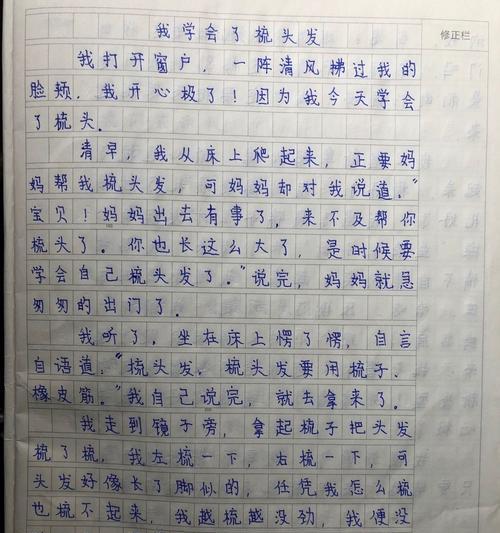 我学会了梳头发
修正栏
我打开窗户，一阵清风拂过我的
脸颊，我开心极了！因为我今天学会
了梳头。
清早，我从床上爬起来，正要妈
妈帮我梳头发，可妈妈却对我说道，“
宝贝！妈妈出去有事了，来不及帮你
梳头了。你也长这么大了，是时候要
学会自己梳头发了。”说完，妈妈就急
匆匆的出门了。
我听了，坐在床上愣了愣，自言
自语道：“梳头发，梳头发要用梳子、
橡皮筋。”我自己说完，就去拿来了。
我走到镜子旁，拿起梳子把头发
梳了梳，我左梳一下，右梳一下，可
头发好像长了脚似的，任凭我怎么梳
也梳不起来，我越梳越没劲，我便没